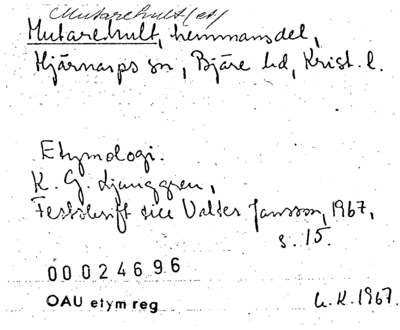 Mutarehult(et)
Mutarehult, hemmansdel,
Hjärnarps sn, Bjäre hd, Krist. l.
Etymologi.
K. G. Ljunggren,
Festskrift till Valter Jansson, 1967,
s. 15.
00024696
OAU etym reg
U.K. 1967.